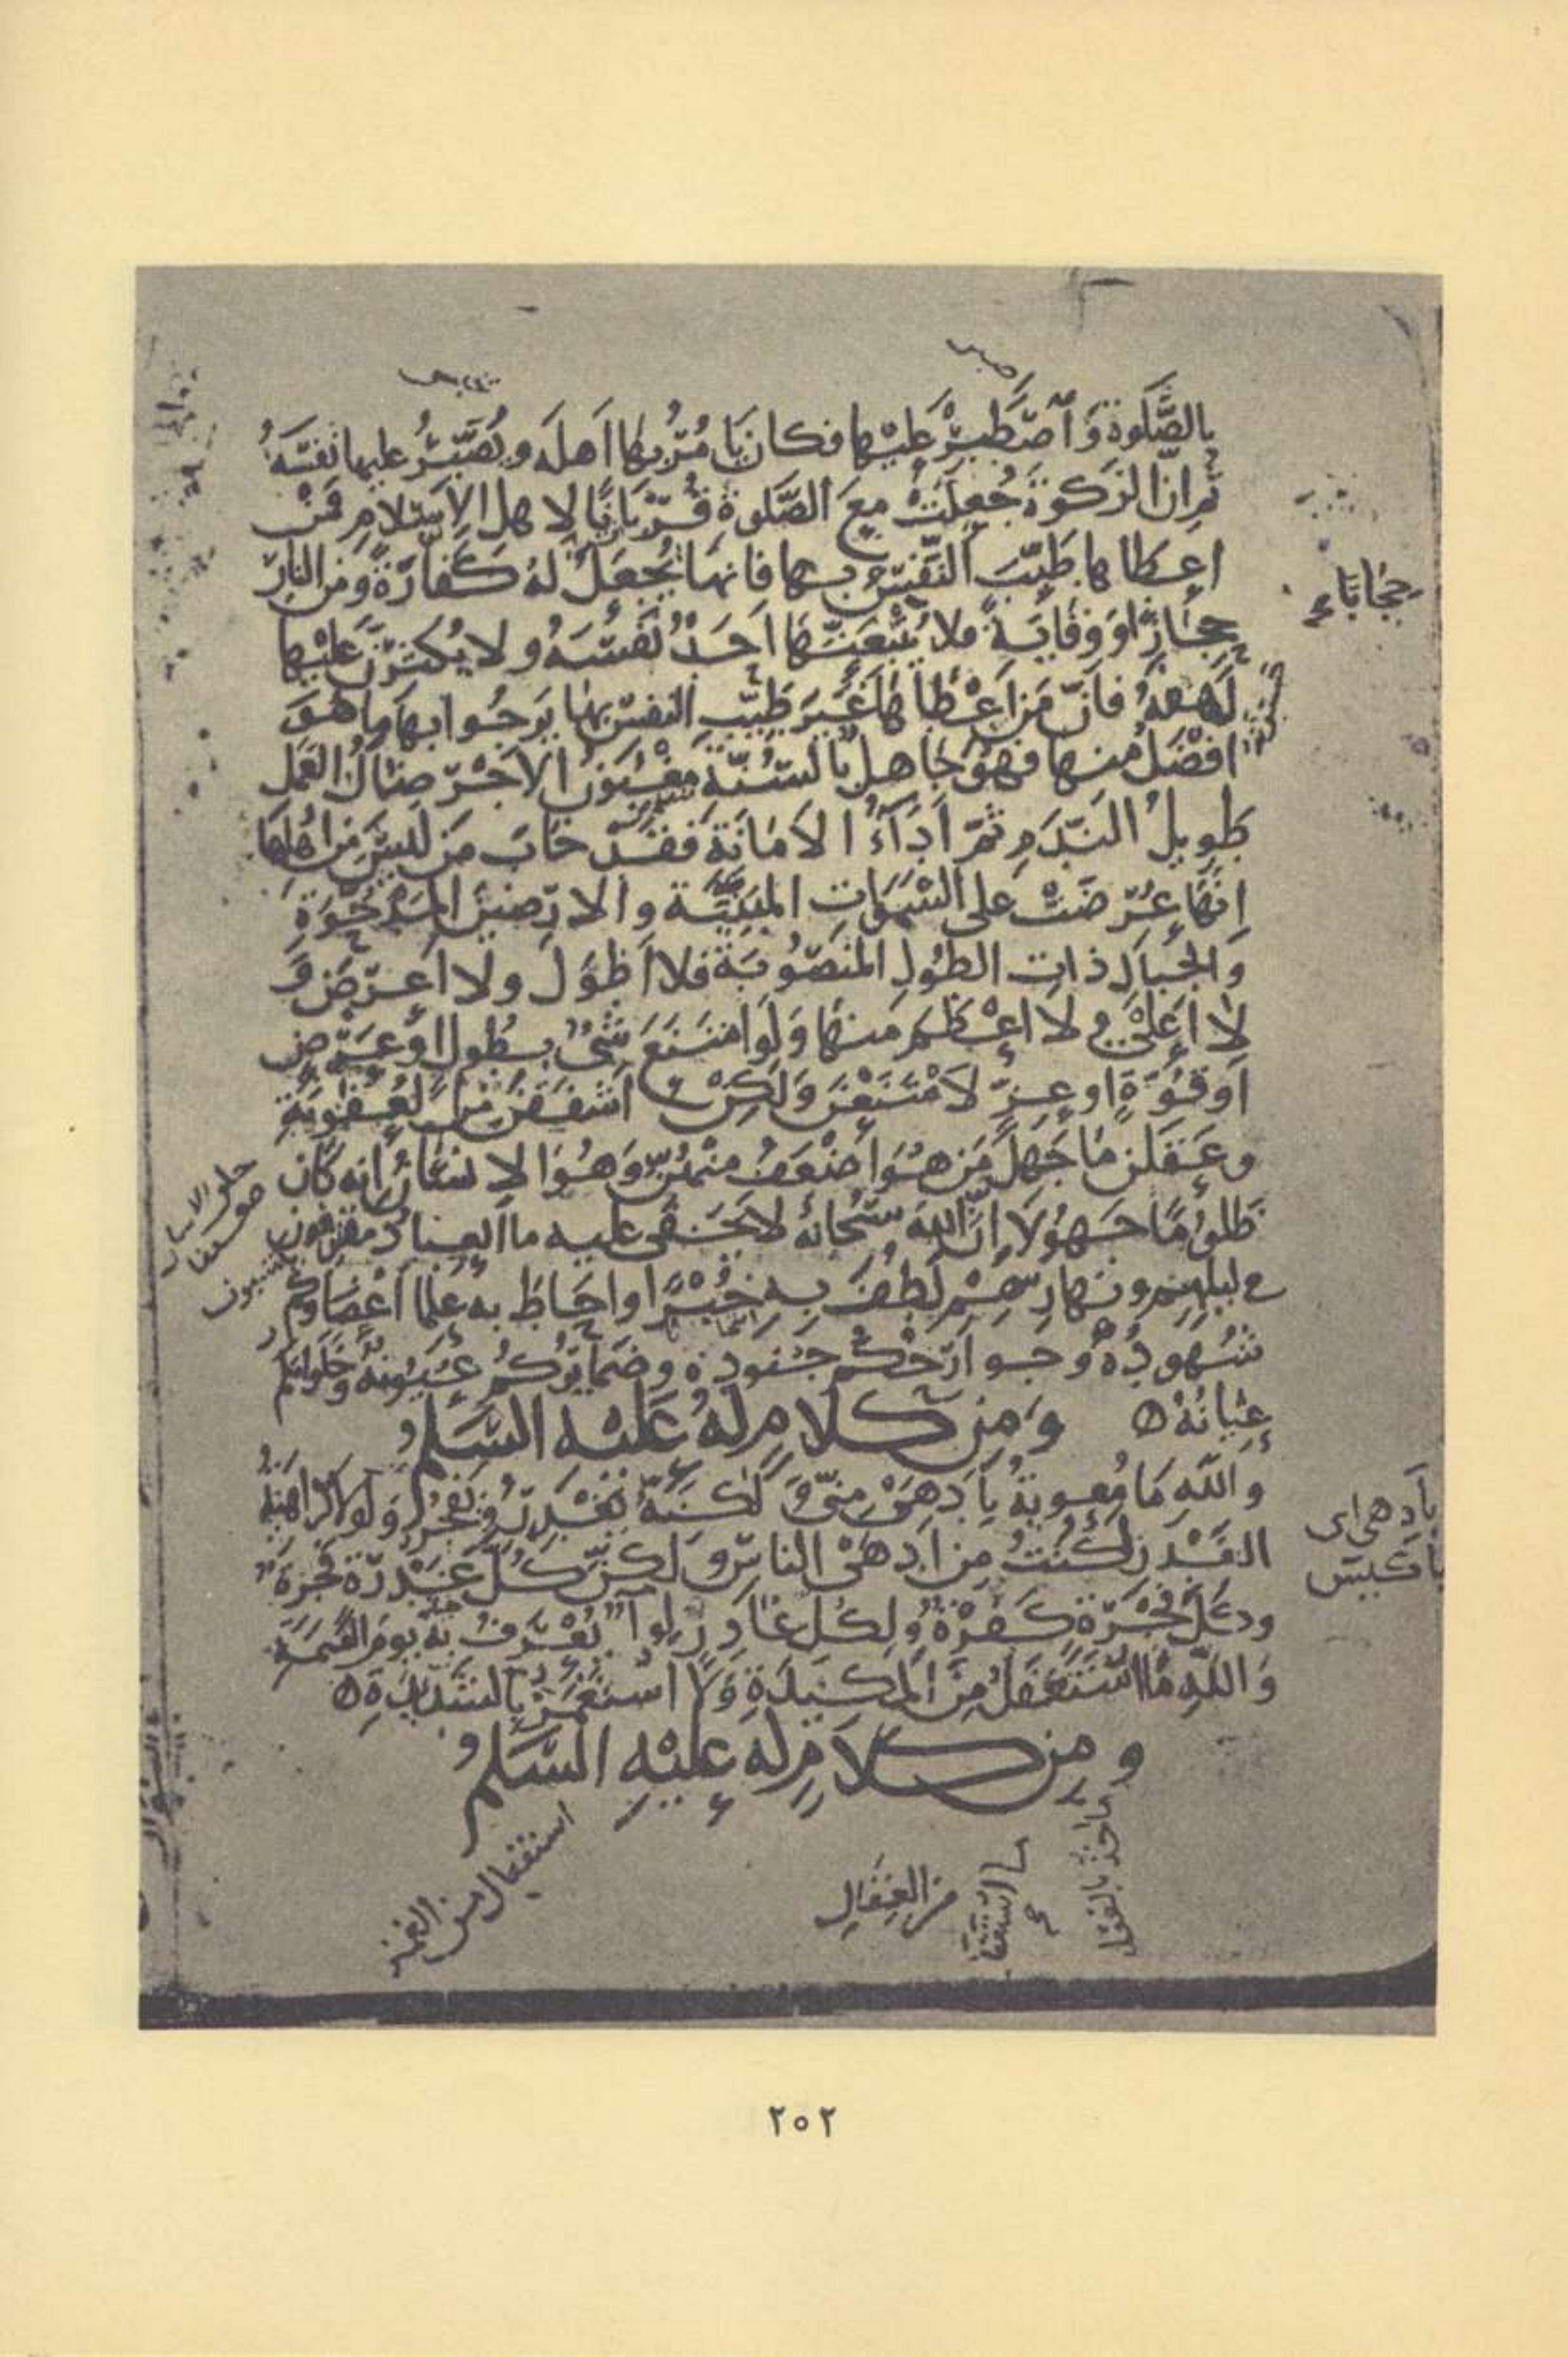 بِالصَّلوةِ وَاصْطَبِرْ عَلَيْها فكان يَأْمُرُ بها اَهلَه ويُصَبِّرُ عليها نَفْسَهُ
ثم انّ الزكوةَ جُعِلَتْ مع الصَّلوةِ قُرْبانًا لاهل الاِسْلامِ فمَنْ
اعطاها طَيِّبَ النَّفْسِ بها فانها تُجْعَلُ لهُ كَفّارَةً ومن النار
حِجازًا ووِقايَةً فلا يُتْبِعَنَّها اَحَدٌ نَفْسَهُ ولا يُكْثِرَنَّ عَلَيْها
لَهَفَهُ فانّ مَن اَعْطاها غَيْرَ طَيِّبِ النفسِ بها يَرجُوا بها ما هُوَ
افْضَلُ منها فهُوَ جاهلٌ بالسُّنّةِ مَغْبُونُ الاَجْرِ ضالُّ العَمَل
طَوِيلُ النَّدَمِ ثمّ اَدَآءُ الاَمانَةِ فَقَدْ خابَ مَن لَيسَ مِن اهْلِها
اِنّها عُرِضَتْ على السَّمَواتِ المَبْنِيَّة والارَضينَ المَدْحُوَّةِ
والجِبالِ ذاتِ الطُولِ المَنصُوبَةِ فلا اَطْوَلَ ولا اَعْرَضَ وَ
لا اَعْلى ولا اعْظَمَ منها وَلَو امْتَنَعَ شَىْءٌ بطُولٍ اَو عَرْضٍ
اَو قُوَّةٍ او عِزٍّ لاَمْتَنَعْنَ وَلَكِنْ اَشْفَقْنَ مِنَ العُقُوبَةِ
وعَقَلْنَ ما جَهِلَ مَن هُوَ اَضْعَفُ مِنْهُنَّ وَهُوَ الاِنسانُ اِنه كانَ
ظَلُومًا جَهُولًا اِنَّ اللهَ سُبْحانَهُ لا يَخْفى عليه ما العِبادُ مقترفون
في ليلِهم ونهارِهِمْ لَطُفَ بهِ خُبْرًا واحاطَ به عِلْمًا اَعْضاؤكم
شُهودُهُ وجوارِحُكم جُنودُه وضَمايِرُكُمْ عُيُونُهُ وخَلَواتُكم
عِيانُهُ
ومِن كلامٍ لهُ عَلَيْهِ السَّلمُ
واللهِ ما مُعويةُ بِاَدْهَى مِنّى وَلكنّهُ يَغْدِرُ ويَفْجُرُ وَلَولا كَراهيَةُ
الغَدْرِ لَكُنْتُ مِن اَدْهَى الناسِ وَلكِنْ كُلُّ غَدْرَةٍ فَجْرَةٌ
وكُلُّ فَجْرَةٍ كَفْرَةٌ ولِكُلِّ غادِرٍ لِوآءٌ يُعْرَفُ بهِ يومَ القيمةِ
وَاللهِ ما اُسْتَغْفَلُ مِنَ المَكيدَةِ وَلا اُسْتَغْمَزُ بِالشَّديدَةِ
ومِن كلامٍ لهُ عَلَيْهِ السَّلمُ
حِجابًا
بأدهى اى
بأكيس
مقترفون
٢٥٢